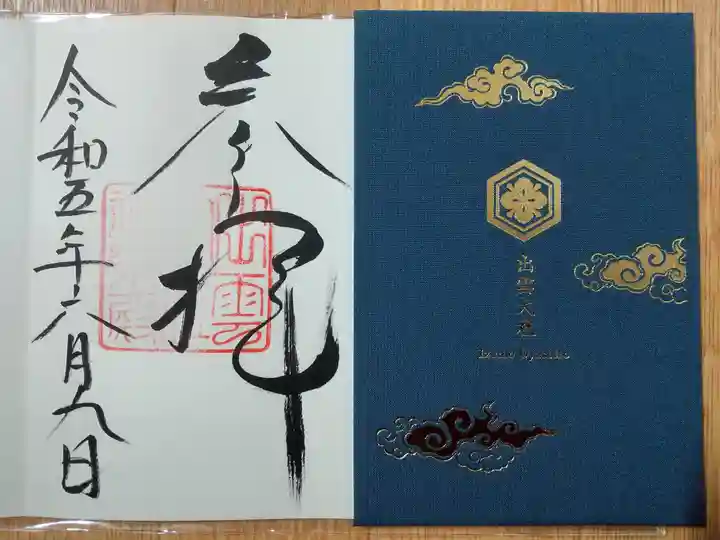 参拝
令和五年六月九日
出雲大社
Izumo Oyashiro